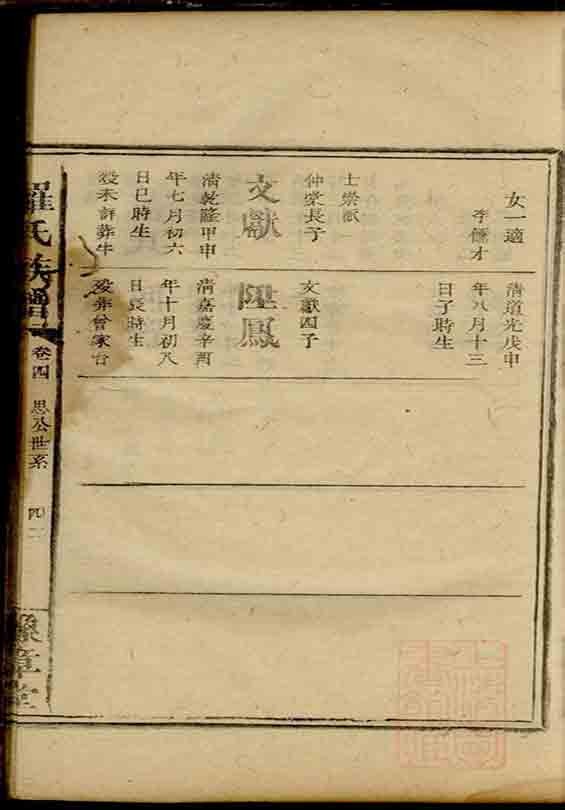 女一適
李儒才
士崇
仲棠長子
文獻
清乾隆甲申
年七月初六
日巳時生
歿未詳葬牛
清道光戊申
年八月十三
日子時生
文獻四子
陞鳳
清嘉慶辛酉
年十月初八
日辰時生
歿葬曾家台
羅氏族譜
卷四
思公世系
四二
豫章堂